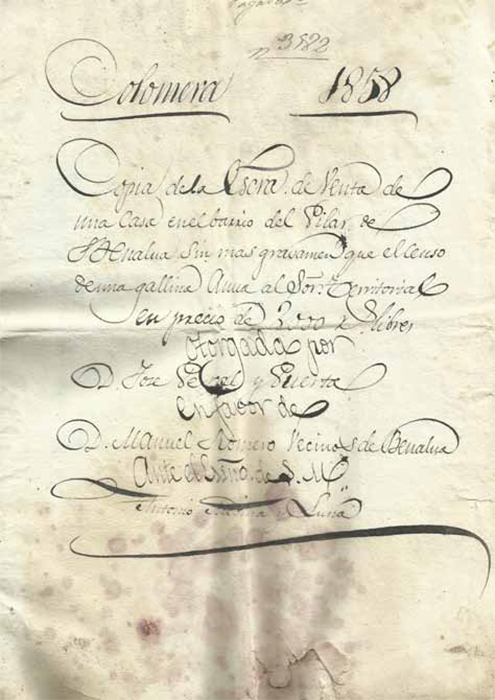 nº 3982
Colomera 1858
Copia de la Escra. de Venta de
una Casa en el barrio del Pilar de
Benalua sin mas gravamen que el censo
de una gallina Anua al Sor. Territorial
en precio de 3000 r. libres
otorgada por
D. Jose y Puerta
en favor de
D. Manuel Romero Vecinos de Benalua
Ante el Esño. de S. M.
Antonio Medina y Luna